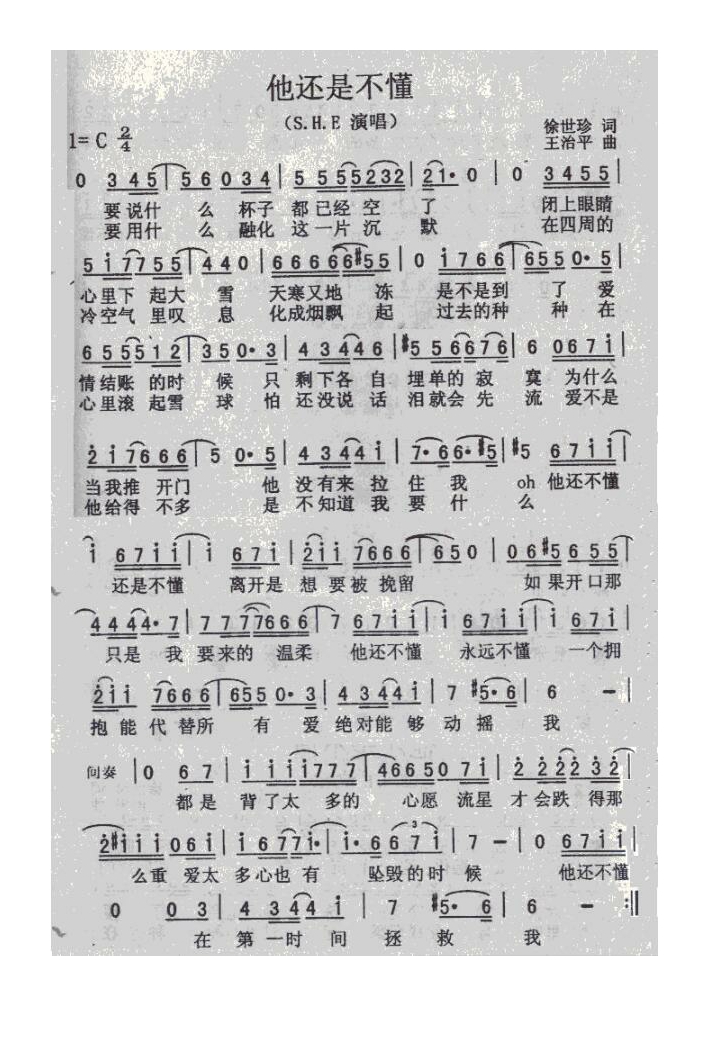 他还是不懂
(S.H.E 演唱)
1= C 2/4
徐世珍 词
王治平 曲
0 3 4 5 | 5 6 0 3 4 | 5 5 5 5 2 3 2 | 2 1· 0 | 0 3 4 5 5 |
要说什 么 杯子 都已经 空 了 闭上眼睛
要用什 么 融化 这一片 沉 默 在四周的
5 i 7 7 5 5 | 4 4 0 | 6 6 6 6 6 #5 5 | 0 i 7 6 6 | 6 5 5 0· 5 |
心里下 起大 雪 天寒又地 冻 是不是到 了 爱
冷空气 里叹 息 化成烟飘 起 过去的种 种 在
6 5 5 5 1 2 | 3 5 0· 3 | 4 3 4 4 6 | #5 5 6 6 7 6 | 6 0 6 7 i |
情结账 的时 候 只 剩下各 自 埋单的 寂 寞 为什么
心里滚 起雪 球 怕 还没说 话 泪就会 先 流 爱不是
2 i 7 6 6 6 | 5 0· 5 | 4 3 4 4 i | 7· 6 6· #5 | #5 6 7 i i |
当我推 开门 他 没有来 拉 住 我 oh 他还不懂
他给得 不多 是 不知道 我 要 什 么
i 6 7 i i | i 6 7 i | 2 i i 7 6 6 6 | 6 5 0 | 0 6 #5 6 5 5 |
还是不懂 离开是 想 要被 挽留 如果开口那
4 4 4 4· 7 | 7 7 7 7 6 6 6 | 7 6 7 i i | i 6 7 i i | i 6 7 i |
只是 我 要来的 温柔 他还不懂 永远不懂 一个拥
2 i i 7 6 6 6 | 6 5 5 0· 3 | 4 3 4 4 i | 7 #5· 6 | 6 － |
抱能 代替所 有 爱 绝对能 够 动 摇 我
间奏 | 0 6 7 | i i i i 7 7 7 | 4 6 6 5 0 7 i | 2 2 2 2 3 2 |
都是 背了太 多的 心愿 流星 才会跌 得那
2 #i i i 0 6 i | i 6 7 7 i· | i· 6 6 7 i | 7 － | 0 6 7 i i |
么重 爱太 多心也 有 坠毁的时 候 他还不懂
0 0 3 | 4 3 4 4 i | 7 #5· 6 | 6 － :||
在 第一时 间 拯 救 我